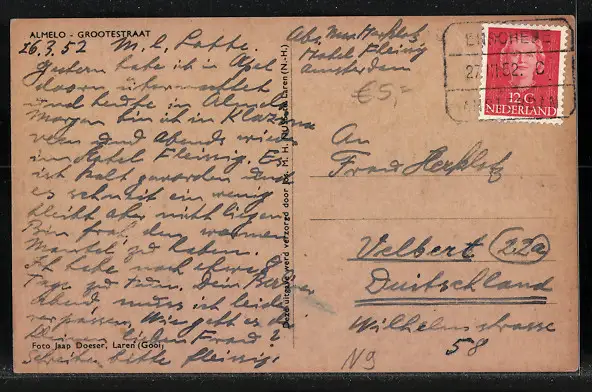 ALMELO - GROOTESTRAAT
26.3.52 M. l. Lotte.
Gestern habe ich in Apel
doorn übernachtet
und heute in Almelo
Morgen bin ich in
veen und Abends wieder
im Hotel Fleissig. Es
ist kalt geworden und
es schneit ein wenig
bleibt aber nicht liegen.
Bin froh, den warmen
Mantel zu haben.
Ich habe noch etwas 8
Tage zu tun. Den
Abend muss ich leider
verpassen. Wie geht es der
kleinen lieben Frau?
Schreiben bitte fleissig.
Foto Jaap Doeser, Laren (Gooi)
Deze uitgave werd verzorgd door Laren (N.-H.)
Abs. Max Herfeltz
Hotel Fleissig
Amsterdam
€5,-
ENSCHEDE
27.III.52. C
12 C
NEDERLAND
An
Frau Herfeltz
Velbert (22a)
Duitschland
Wilhelmstrasse
58
N9